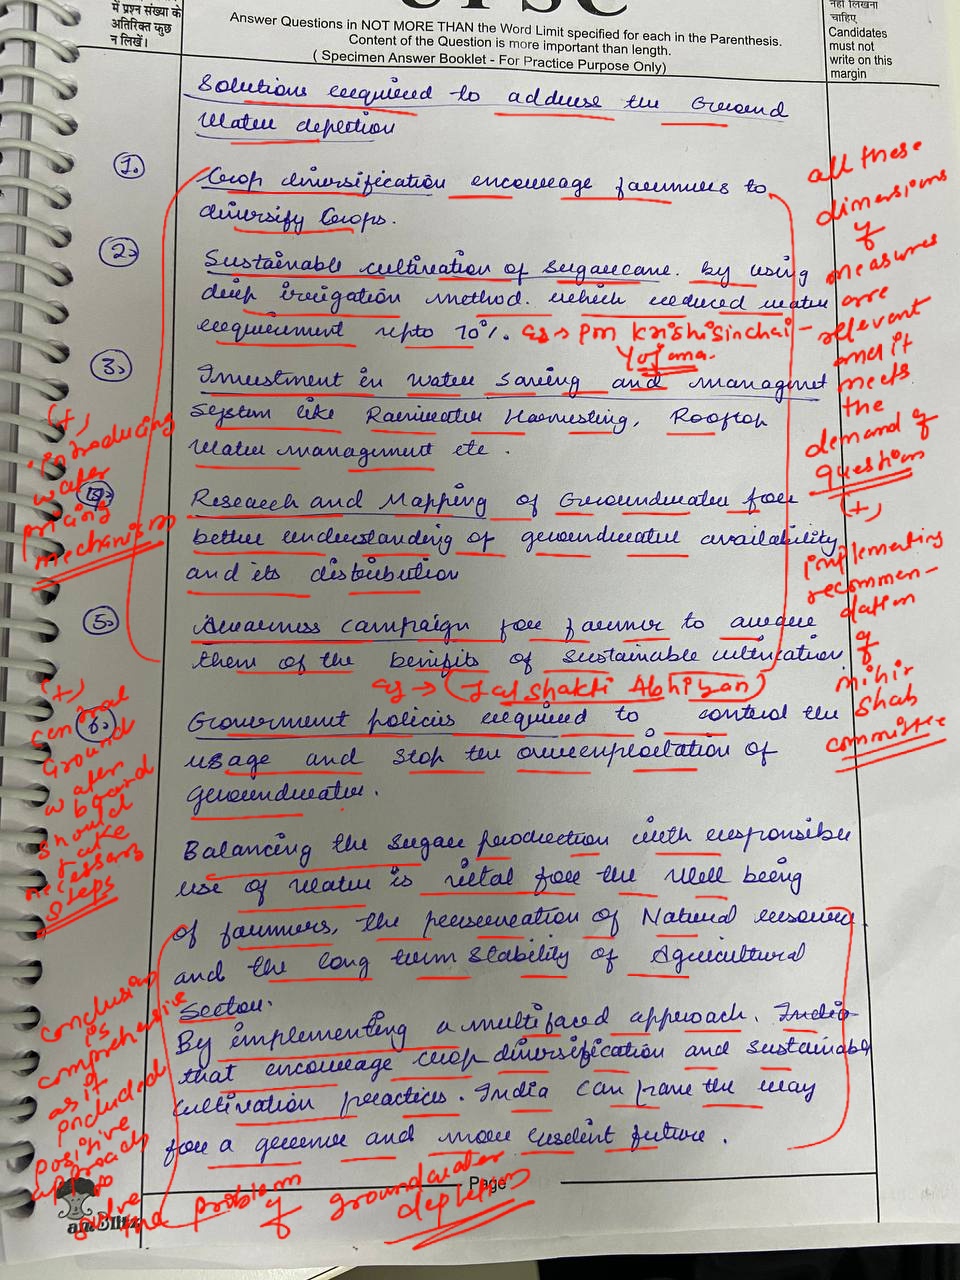 में प्रश्न संख्या के
अतिरिक्त कुछ
न लिखें।
UPSC
Answer Questions in NOT MORE THAN the Word Limit specified for each in the Parenthesis.
Content of the Question is more important than length.
( Specimen Answer Booklet - For Practice Purpose Only)
नहीं लिखना
चाहिए
Candidates
must not
write on this
margin
Solutions required to address the Ground
Water depletion
1. Crop diversification encourage farmers to
diversify Crops.
2. Sustainable cultivation of Sugarcane. by using
drip irrigation method. which reduced water
requirement upto 70%. eg → Pm Krishi Sinchai-
Yojana.
3. Investment in water saving and managment
System like Rainwater Harvesting, Rooftop
Water management etc.
4. Research and Mapping of Groundwater for
better understanding of groundwater availability
and its distribution
5. Awarness campaign for farmer to aware
them of the benifits of sustainable cultivation
eg → (Jal Shakti Abhiyan)
6. Government policies required to control the
usage and stop the overexploitation of
groundwater.
Balancing the sugar production with responsible
use of water is vital for the well being
of farmers, the preservation of Natural resource
and the long term stability of Agricultural
Sector.
By implementing a multifaced approach. India
that encourage crop diversification and sustainable
cultivation practices. India can pave the way
for a greener and more resilient future.
(+)
introducing
water
pricing
mechanism
(+)
central
Ground
water
board
should
take
necessary
steps
conclusion
is
comprehensive
as it
included
positive
approach
to
solve
the problem
of groundwater
depletion
all these
dimensions
of
measures
are
relevant
and it
meets
the
demand of
question
(+)
implementing
recommen-
dation
of
mihir
shah
committee
Page